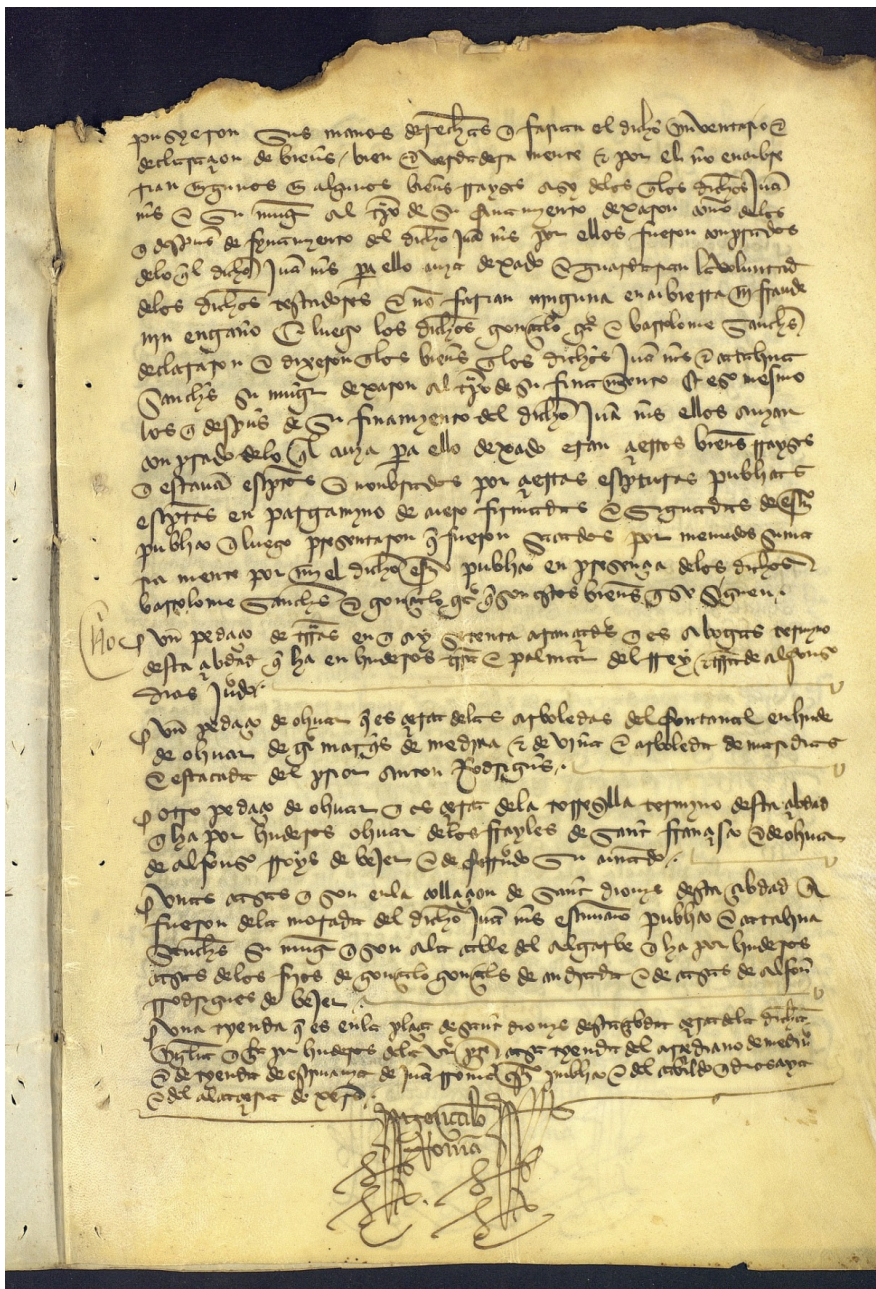 pusyeron sus manos derechas e farian el dicho ynventario e
declaraçon de bienes bien e verdadera mente e por el no encubre
rian ningunos nin algunos bienes rrayses asy delos quelos dichos Juā
mrs e su muger al tpo de su finamyento dexaron como delos
que despues de fynamyento del dicho Juā mrs por ellos fueron conprados
delo quel dicho Juā mrs pa ello avya dexado e guardarian la voluntad
delos dichos testadores e non farian ninguna encubierta nin fraude
nin engaño E luego los dichos gonçalo grs e bartolome Sanches
declararon e dixeron quelos bienes quelos dichos Juā mrs e catalina
Sanches su muger dexaron al tpo de su finamyento Et eso mesmo
los que despues de su finamyento del dicho Juā mrs ellos avyan
conprado delo quel avya pa ello dexado eran çiertos bienes rrayses
que estavā escriptos e nonbrados por çiertas escripturas publicas
escriptas en pargamyno de cuero firmadas e signadas de escrno
publico que luego presentaron que fueron sacados por menudos suma
ria mente por mi el dicho escrno publico en presençia delos dichos
bartolome Sanches e gonçalo grs que son estos bienes que se siguen
Un pedaço de tierras en que ay setenta arançadas que es a bogas termyno
desta çibdad que ha en linderos trra e palmar del Rey e trra de alfonso
dias Jurado
Un pedaço de olivar que es çerca delas arboledas del fontanal en linde
de olivar de gil marques de medina e de viña e arboleda de
e estacada del prior anton Rodrigues
otro pedaço de olivar que es çerca dela torresilla termyno desta çibdad
que ha por linderos olivar delos frayles de Sant françisco e de olivar
de alfonso rroys de bejer e de ferrando su
Unas casas que son enla collaçon de Sant dionys desta çibdad que
fueron dela morada del dicho Juā mrs escrivano publico e catalina
Sanches su muger que son ala calle del algarbe que ha por linderos
casas delos fijos de gonçalo gonçales de e de casas de alfon
rrodrigues de bejer
Una tyenda que es enla plaça de sant dionys desta çibdad çerca dela dicha
yglesia que ha por linderos dela una pte casa tyenda del arçediano de medina
e de tyenda de escrivanya de Juā rromā escrno publico e del cabildo
e del alcaçar de xeres
gonçalo
Romā